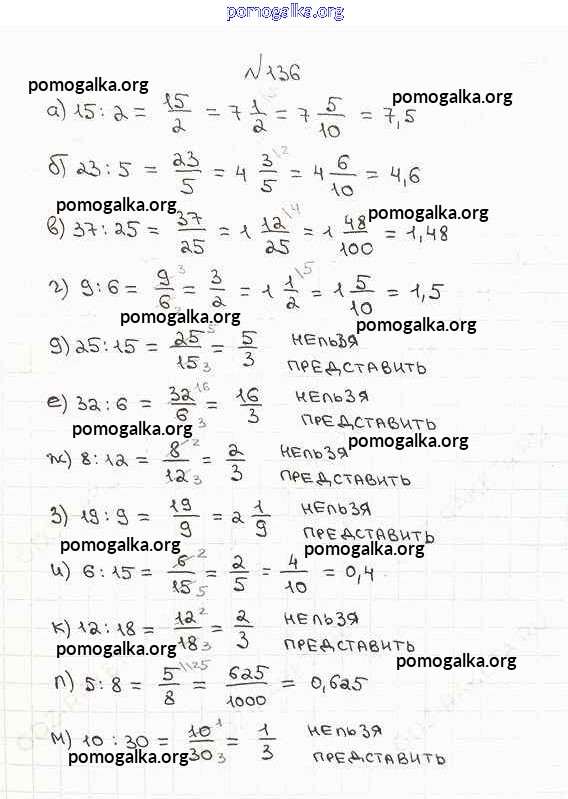 pomogalka.org
№136
pomogalka.org
pomogalka.org
а) 15 : 2 = 15/2 = 7 1/2 = 7 5/10 = 7,5
б) 23 : 5 = 23/5 = 4 3/5 \2 = 4 6/10 = 4,6
pomogalka.org
pomogalka.org
в) 37 : 25 = 37/25 = 1 12/25 \4 = 1 48/100 = 1,48
г) 9 : 6 = 9/6 3 = 3/2 = 1 1/2 \5 = 1 5/10 = 1,5
pomogalka.org
pomogalka.org
д) 25 : 15 = 25/15 5 3 = 5/3 НЕЛЬЗЯ
ПРЕДСТАВИТЬ
е) 32 : 6 = 32/6 16 3 = 16/3 НЕЛЬЗЯ
ПРЕДСТАВИТЬ
pomogalka.org
pomogalka.org
ж) 8 : 12 = 8/12 2 3 = 2/3 НЕЛЬЗЯ
ПРЕДСТАВИТЬ
з) 19 : 9 = 19/9 = 2 1/9 НЕЛЬЗЯ
ПРЕДСТАВИТЬ
pomogalka.org
pomogalka.org
и) 6 : 15 = 6/15 2 5 = 2/5 = 4/10 = 0,4
к) 12 : 18 = 12/18 2 3 = 2/3 НЕЛЬЗЯ
ПРЕДСТАВИТЬ
pomogalka.org
pomogalka.org
л) 5 : 8 = 5/8 \125 = 625/1000 = 0,625
м) 10 : 30 = 10/30 1 3 = 1/3 НЕЛЬЗЯ
ПРЕДСТАВИТЬ
pomogalka.org
pomogalka.org